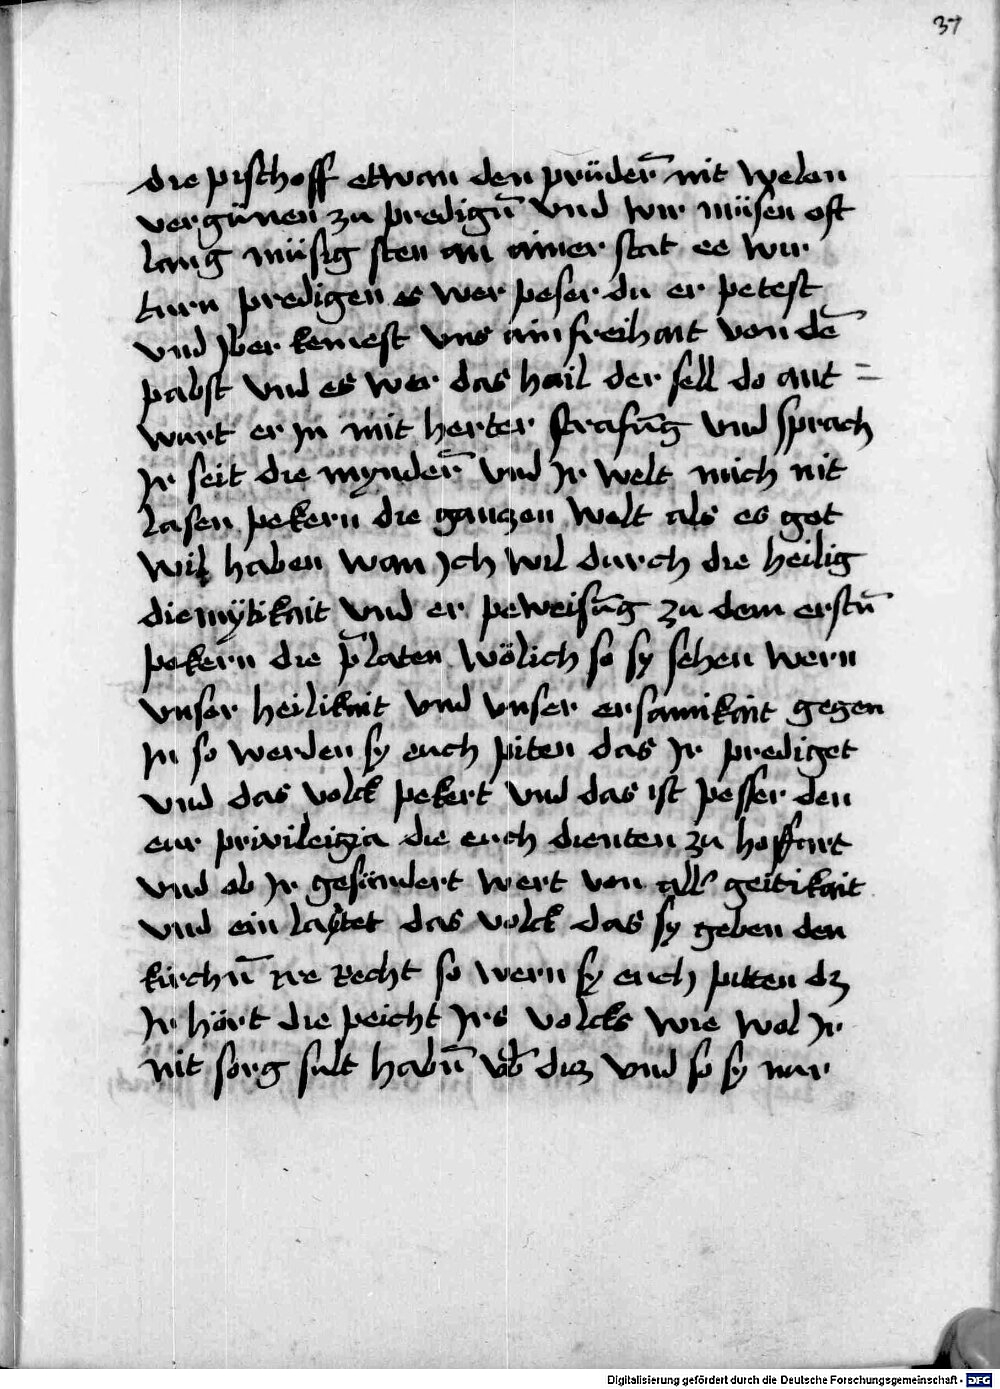 37
die pischoff etwan den prüder̄ nit welen
vergünen zu predign̄ vnd wir müsen oft
lang müsig sten an ainer stat ee wir
turn predigen es wer peser du er petest
vnd jber kemest vns ain freihait von dē
pabst vnd es wer das hail der sell do ant =
wurt er jn mit herter strafūg vnd sprach
jr seit die mynder̄ vnd jr welt mich nit
lasen pekern die ganczen welt als es got
wil haben wan jch wil durch die heilig
diemÿtikait vnd er peweisūg zu dem erstn̄
pekern die p̄laten wölich so sy sehen wern
vnser heilikait vnd vnser ersamikait gegen
jn so werden sy euch piten das jr prediget
vnd das volck pekert vnd das ist pesser den
eur privileigia die euch dienten zu hoffart
vnd ob jr gesündert wert von all' geitikait
vnd ein laÿtet das volck das sy geben den
kirchn̄ ire Recht so wern sy euch pitten dz
jr hört die peicht jrs volcks wie wol jr
nit sorg sult habn̄ vb̄ diz vnd so sy nur
Digitalisierung gefördert durch die Deutsche Forschungsgemeinschaft - DFG